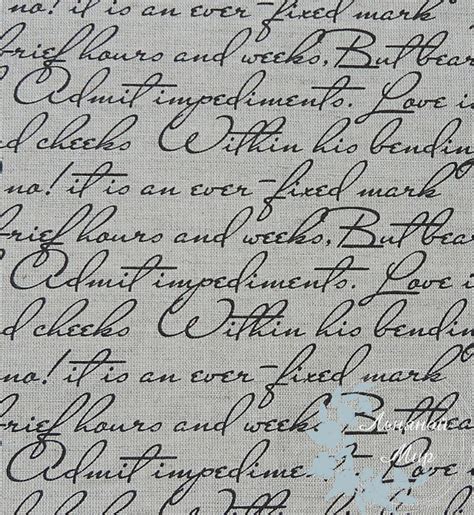 no! it is an ever-fixed mark
brief hours and weeks, But bear
Admit impediments. Love i
d cheeks Within his bendin
no! it is an ever-fixed mark
brief hours and weeks, But bear
Admit impediments. Love i
d cheeks Within his bendin
no! it is an ever-fixed mark
brief hours and weeks But bear
Admit impedime Love i
Мир